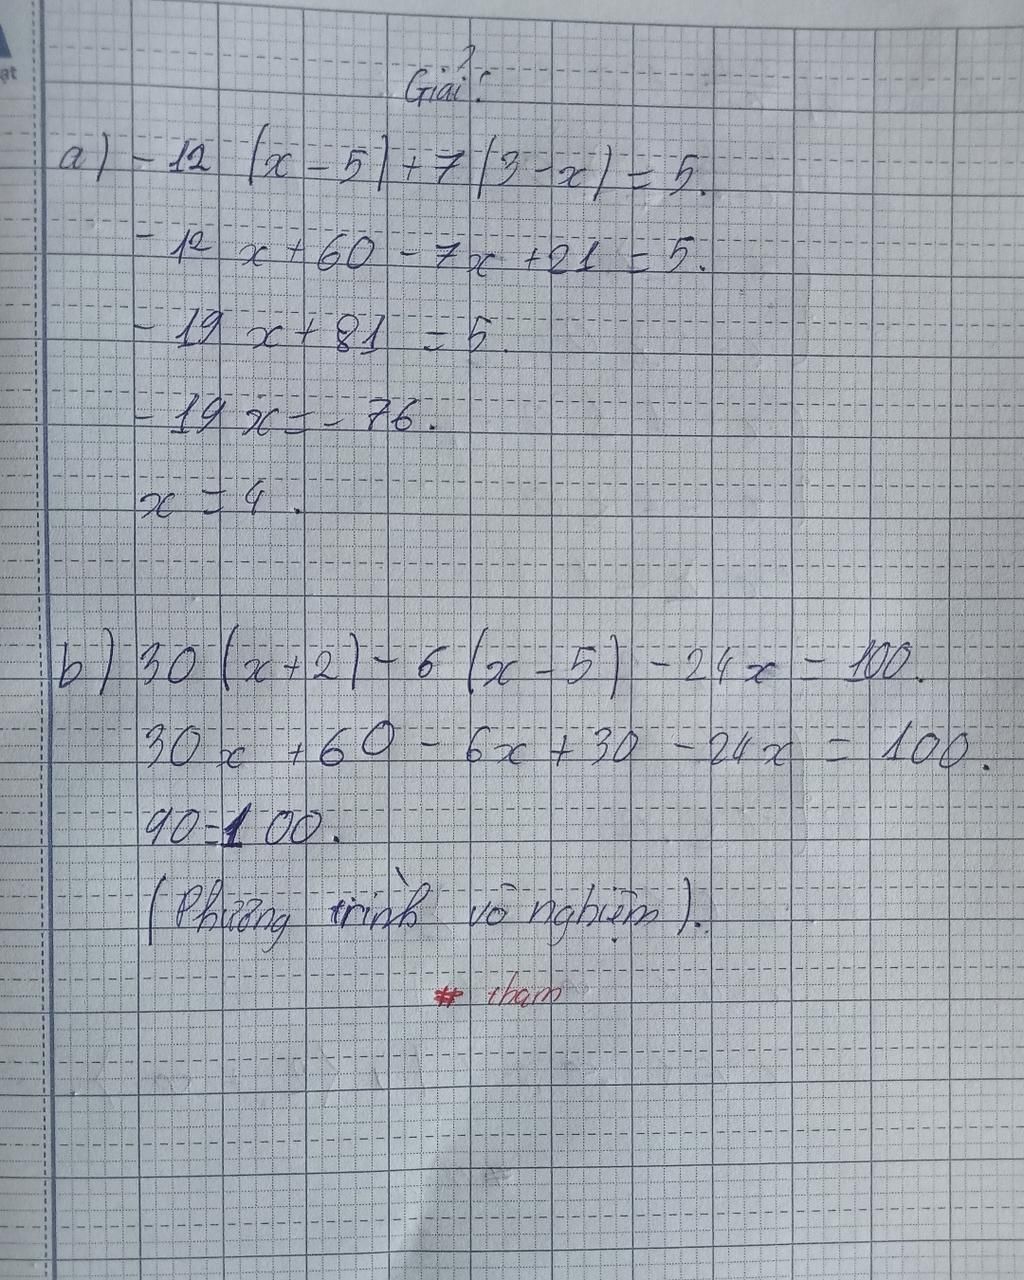 ạt
Giải:
a) - 12 (x - 5) + 7 (3 - x) = 5.
- 12 x + 60 - 7x + 21 = 5.
- 19 x + 81 = 5.
- 19 x = - 76.
x = 4.
b) 30 (x + 2) - 6 (x - 5) - 24x = 100.
30 x + 60 - 6x + 30 - 24x = 100.
90 = 100.
(Phương trình vô nghiệm).
# tham